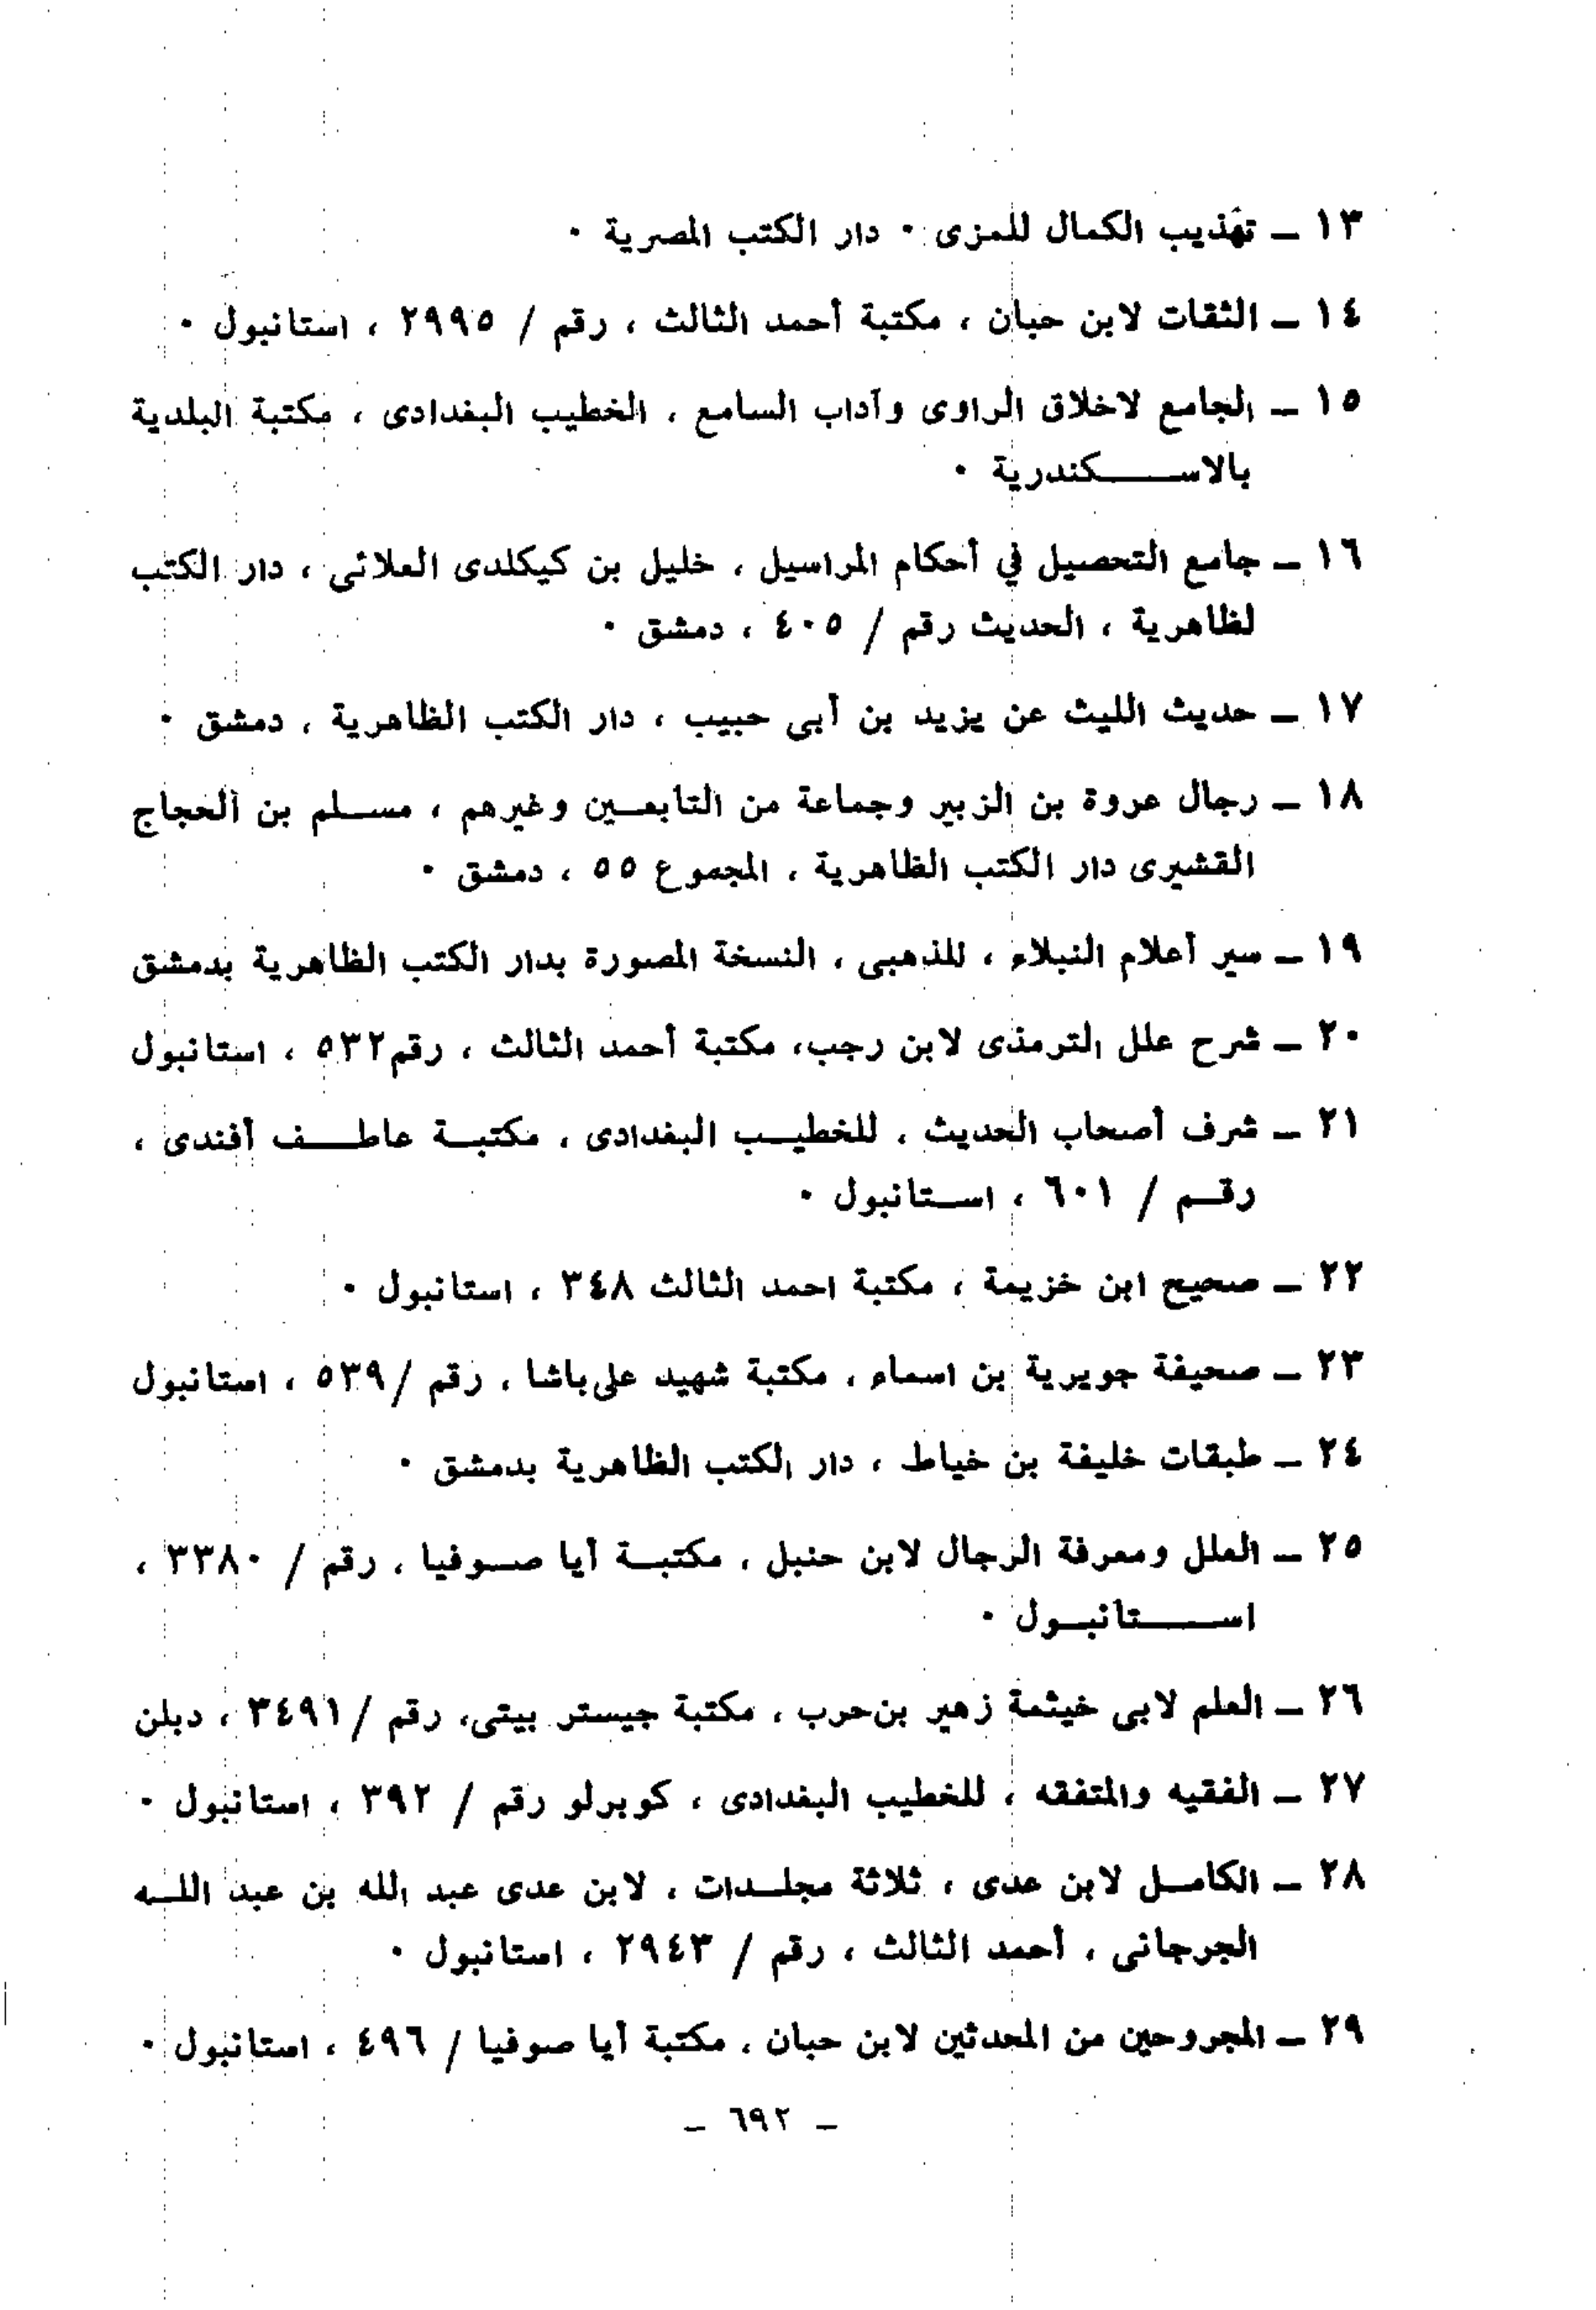 ١٣ ـ تهذيب الكمال للمزى ٠ دار الكتب المصرية ٠
١٤ ـ الثقات لابن حبان ، مكتبة أحمد الثالث ، رقم / ٢٩٩٥ ، استانبول ٠
١٥ ـ الجامع لاخلاق الراوى وآداب السامع ، الخطيب البغدادى ، مكتبة البلدية
بالاســـــكندرية ٠
١٦ ـ جامع التحصيل في أحكام المراسيل ، خليل بن كيكلدى العلائى ، دار الكتب
لظاهرية ، الحديث رقم / ٤٠٥ ، دمشق ٠
١٧ ـ حديث الليث عن يزيد بن أبى حبيب ، دار الكتب الظاهرية ، دمشق ٠
١٨ ـ رجال عروة بن الزبير وجماعة من التابعـين وغيرهم ، مســلم بن الحجاج
القشيرى دار الكتب الظاهرية ، المجموع ٥٥ ، دمشق ٠
١٩ ـ سير أعلام النبلاء ، للذهبى ، النسخة المصورة بدار الكتب الظاهرية بدمشق
٢٠ ـ شرح علل الترمذى لابن رجب، مكتبة أحمد الثالث ، رقم٥٣٢ ، استانبول
٢١ ـ شرف أصحاب الحديث ، للخطيــب البغدادى ، مكتبــة عاطـــف أفندى ،
رقــم / ٦٠١ ، اســتانبول ٠
٢٢ ـ صحيح ابن خزيمة ، مكتبة احمد الثالث ٣٤٨ ، استانبول ٠
٢٣ ـ صحيفة جويرية بن اسماء ، مكتبة شهيد على باشا ، رقم / ٥٣٩ ، استانبول
٢٤ ـ طبقات خليفة بن خياط ، دار الكتب الظاهرية بدمشق ٠
٢٥ ـ العلل ومعرفة الرجال لابن حنبل ، مكتبــة أيا صــوفيا ، رقم / ٣٣٨٠ ،
اســـــتانبــول ٠
٢٦ ـ العلم لابى خيثمة زهير بن حرب ، مكتبة جيستر بيتى، رقم / ٣٤٩١ ، دبلن
٢٧ ـ الفقيه والمتفقه ، للخطيب البغدادى ، كوبرلو رقم / ٣٩٢ ، استانبول ٠
٢٨ ـ الكامــل لابن عدى ، ثلاثة مجلــدات ، لابن عدى عبد الله بن عبد اللــه
الجرجانى ، أحمد الثالث ، رقم / ٢٩٤٣ ، استانبول ٠
٢٩ ـ المجروحين من المحدثين لابن حبان ، مكتبة أيا صوفيا / ٤٩٦ ، استانبول ٠
ـ ٦٩٢ ـ